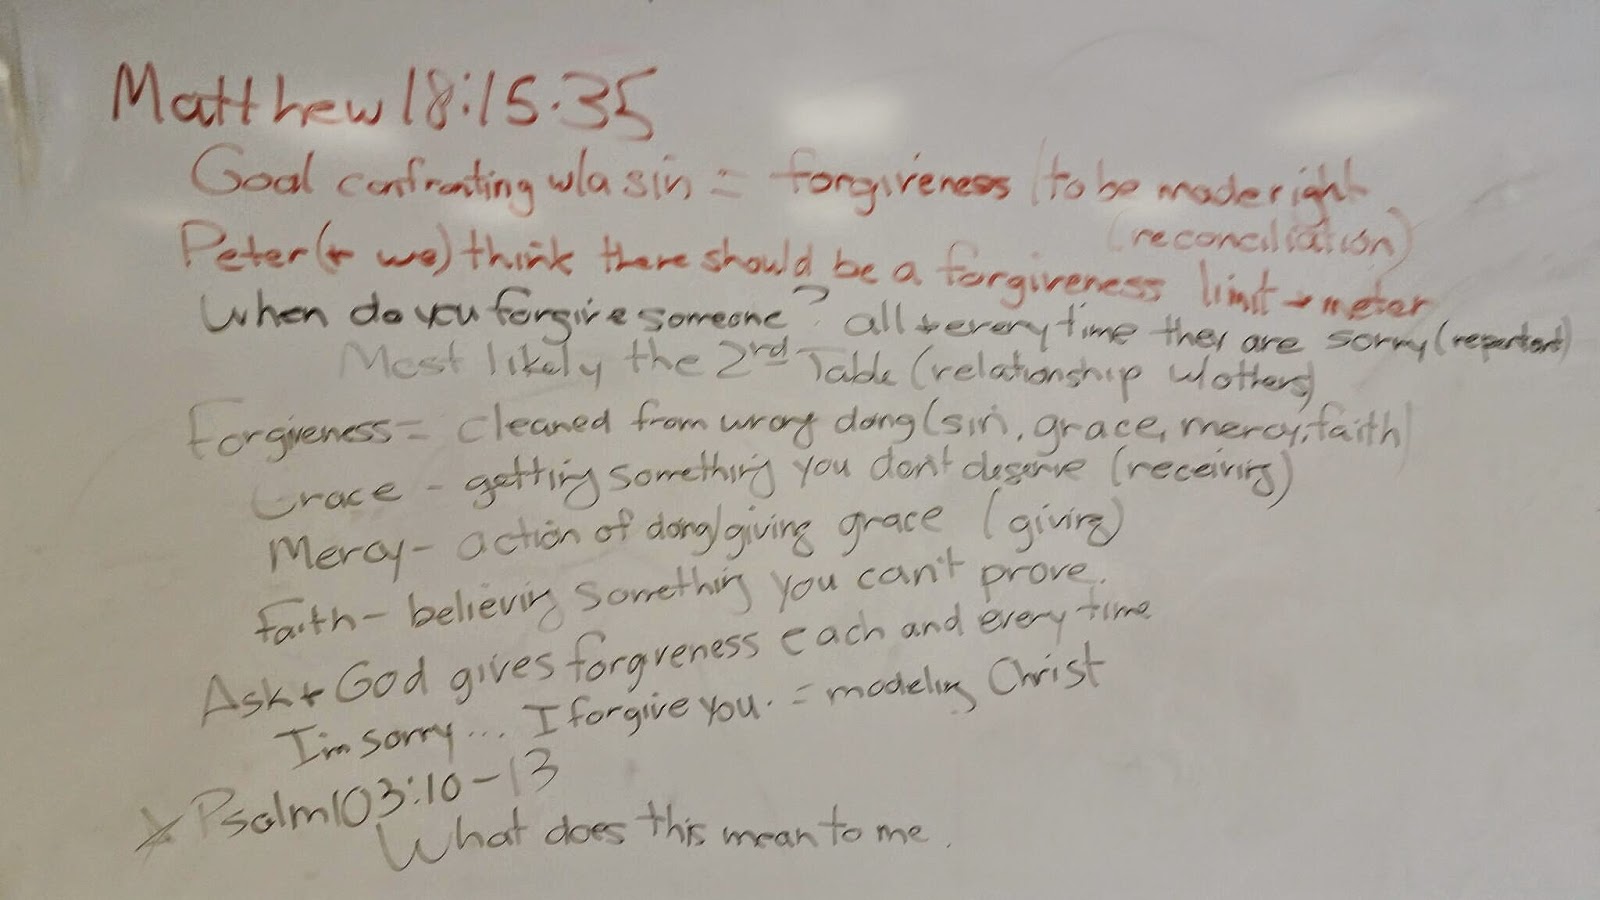 Matthew 18:15.35
Goal confronting w/a sin = forgiveness / to be made right
(reconciliation)
Peter (+ we) think there should be a forgiveness limit → meter
When do you forgive someone? all + every time they are sorry (repentant)
Most likely the 2nd Table (relationship w/others)
Forgiveness = cleaned from wrong dong (sin, grace, mercy, faith)
Grace - getting something you don't deserve (receiving)
Mercy - action of dong/giving grace (giving)
Faith - believing something you can't prove.
Ask + God gives forgiveness each and every time
I'm sorry... I forgive you. = modeling Christ
Psalm 103:10-13
What does this mean to me.